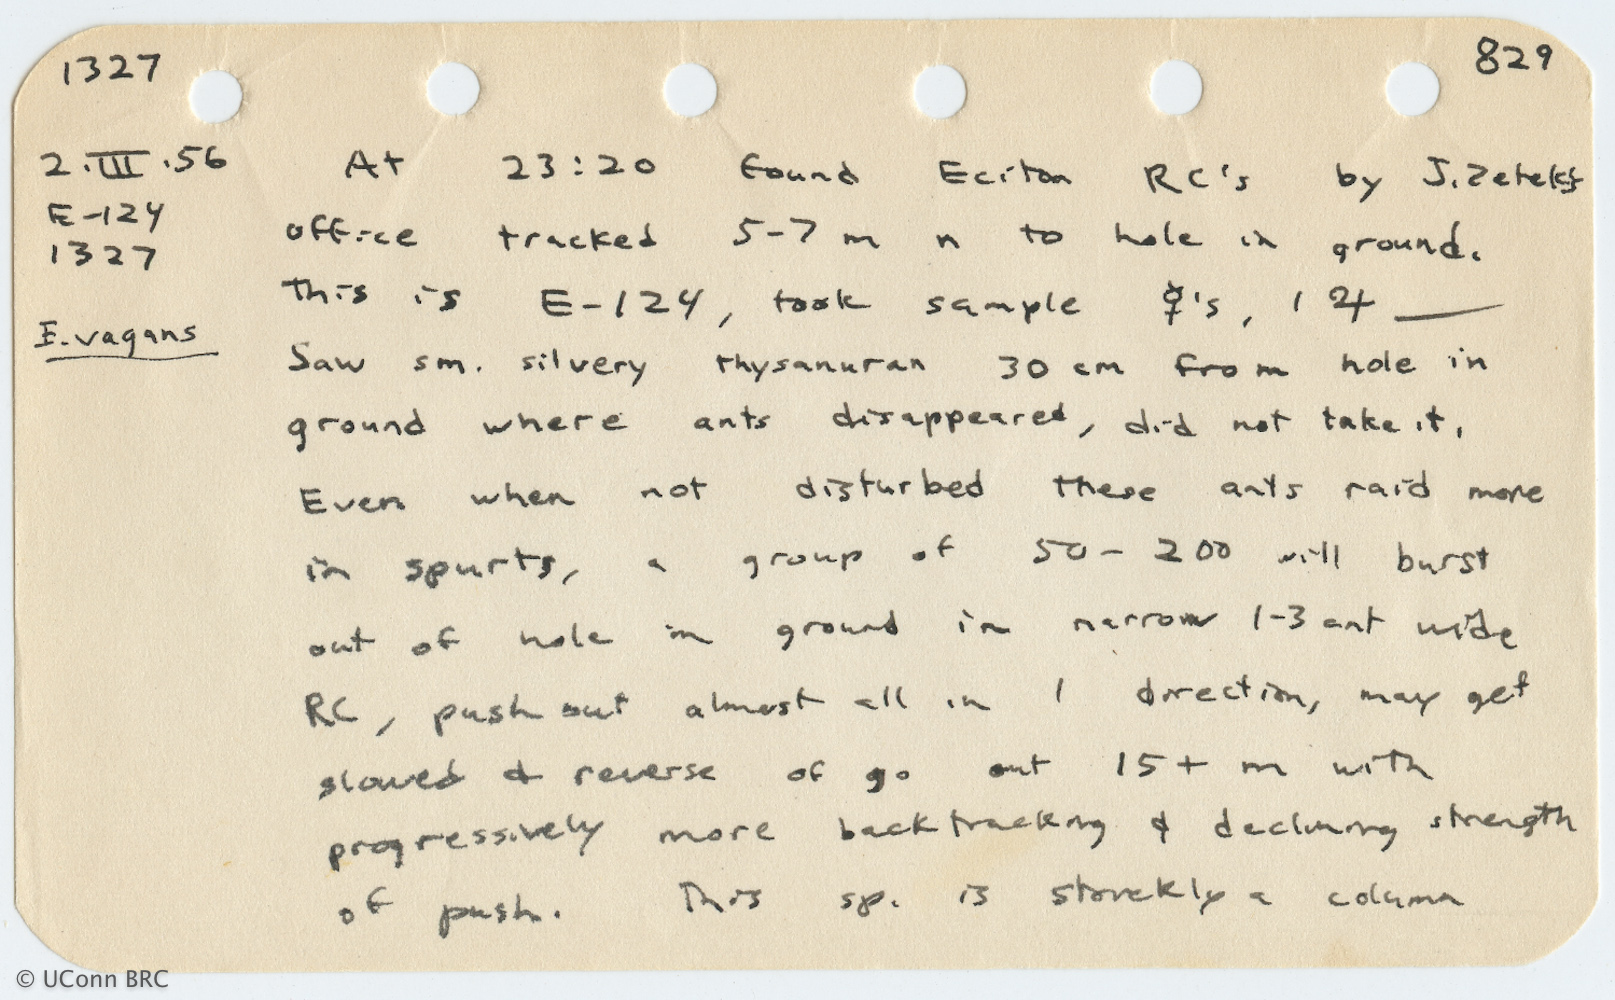 1327
829
2.III.56
E-124
1327
E. vagans
At 23:20 found Eciton RC's by J. Zetek's
office tracked 5-7 m n to hole in ground.
This is E-124, took sample ☿'s, 1 ♃ ——
Saw sm. silvery thysanuran 30 cm from hole in
ground where ants disappeared, did not take it.
Even when not disturbed these ants raid more
in spurts, a group of 50-200 will burst
out of hole in ground in narrow 1-3 ant wide
RC, push out almost all in 1 direction, may get
slowed & reverse of go out 15+ m with
progressively more backtracking & declining strength
of push. This sp. is a column
© UConn BRC